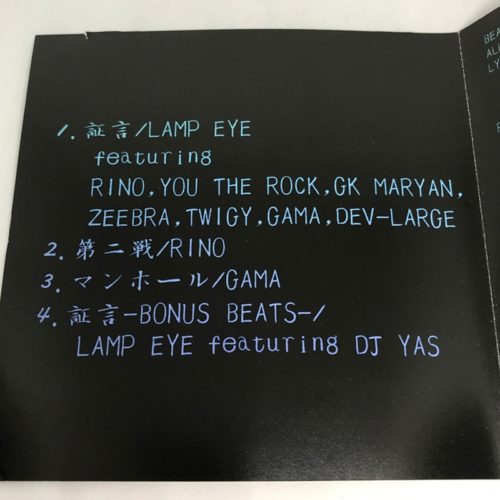 1. 証言/LAMP EYE
featuring
RINO,YOU THE ROCK,GK MARYAN,
ZEEBRA,TWIGY,GAMA,DEV-LARGE
2. 第二戦/RINO
3. マンホール/GAMA
4. 証言-BONUS BEATS-/
LAMP EYE featuring DJ YAS